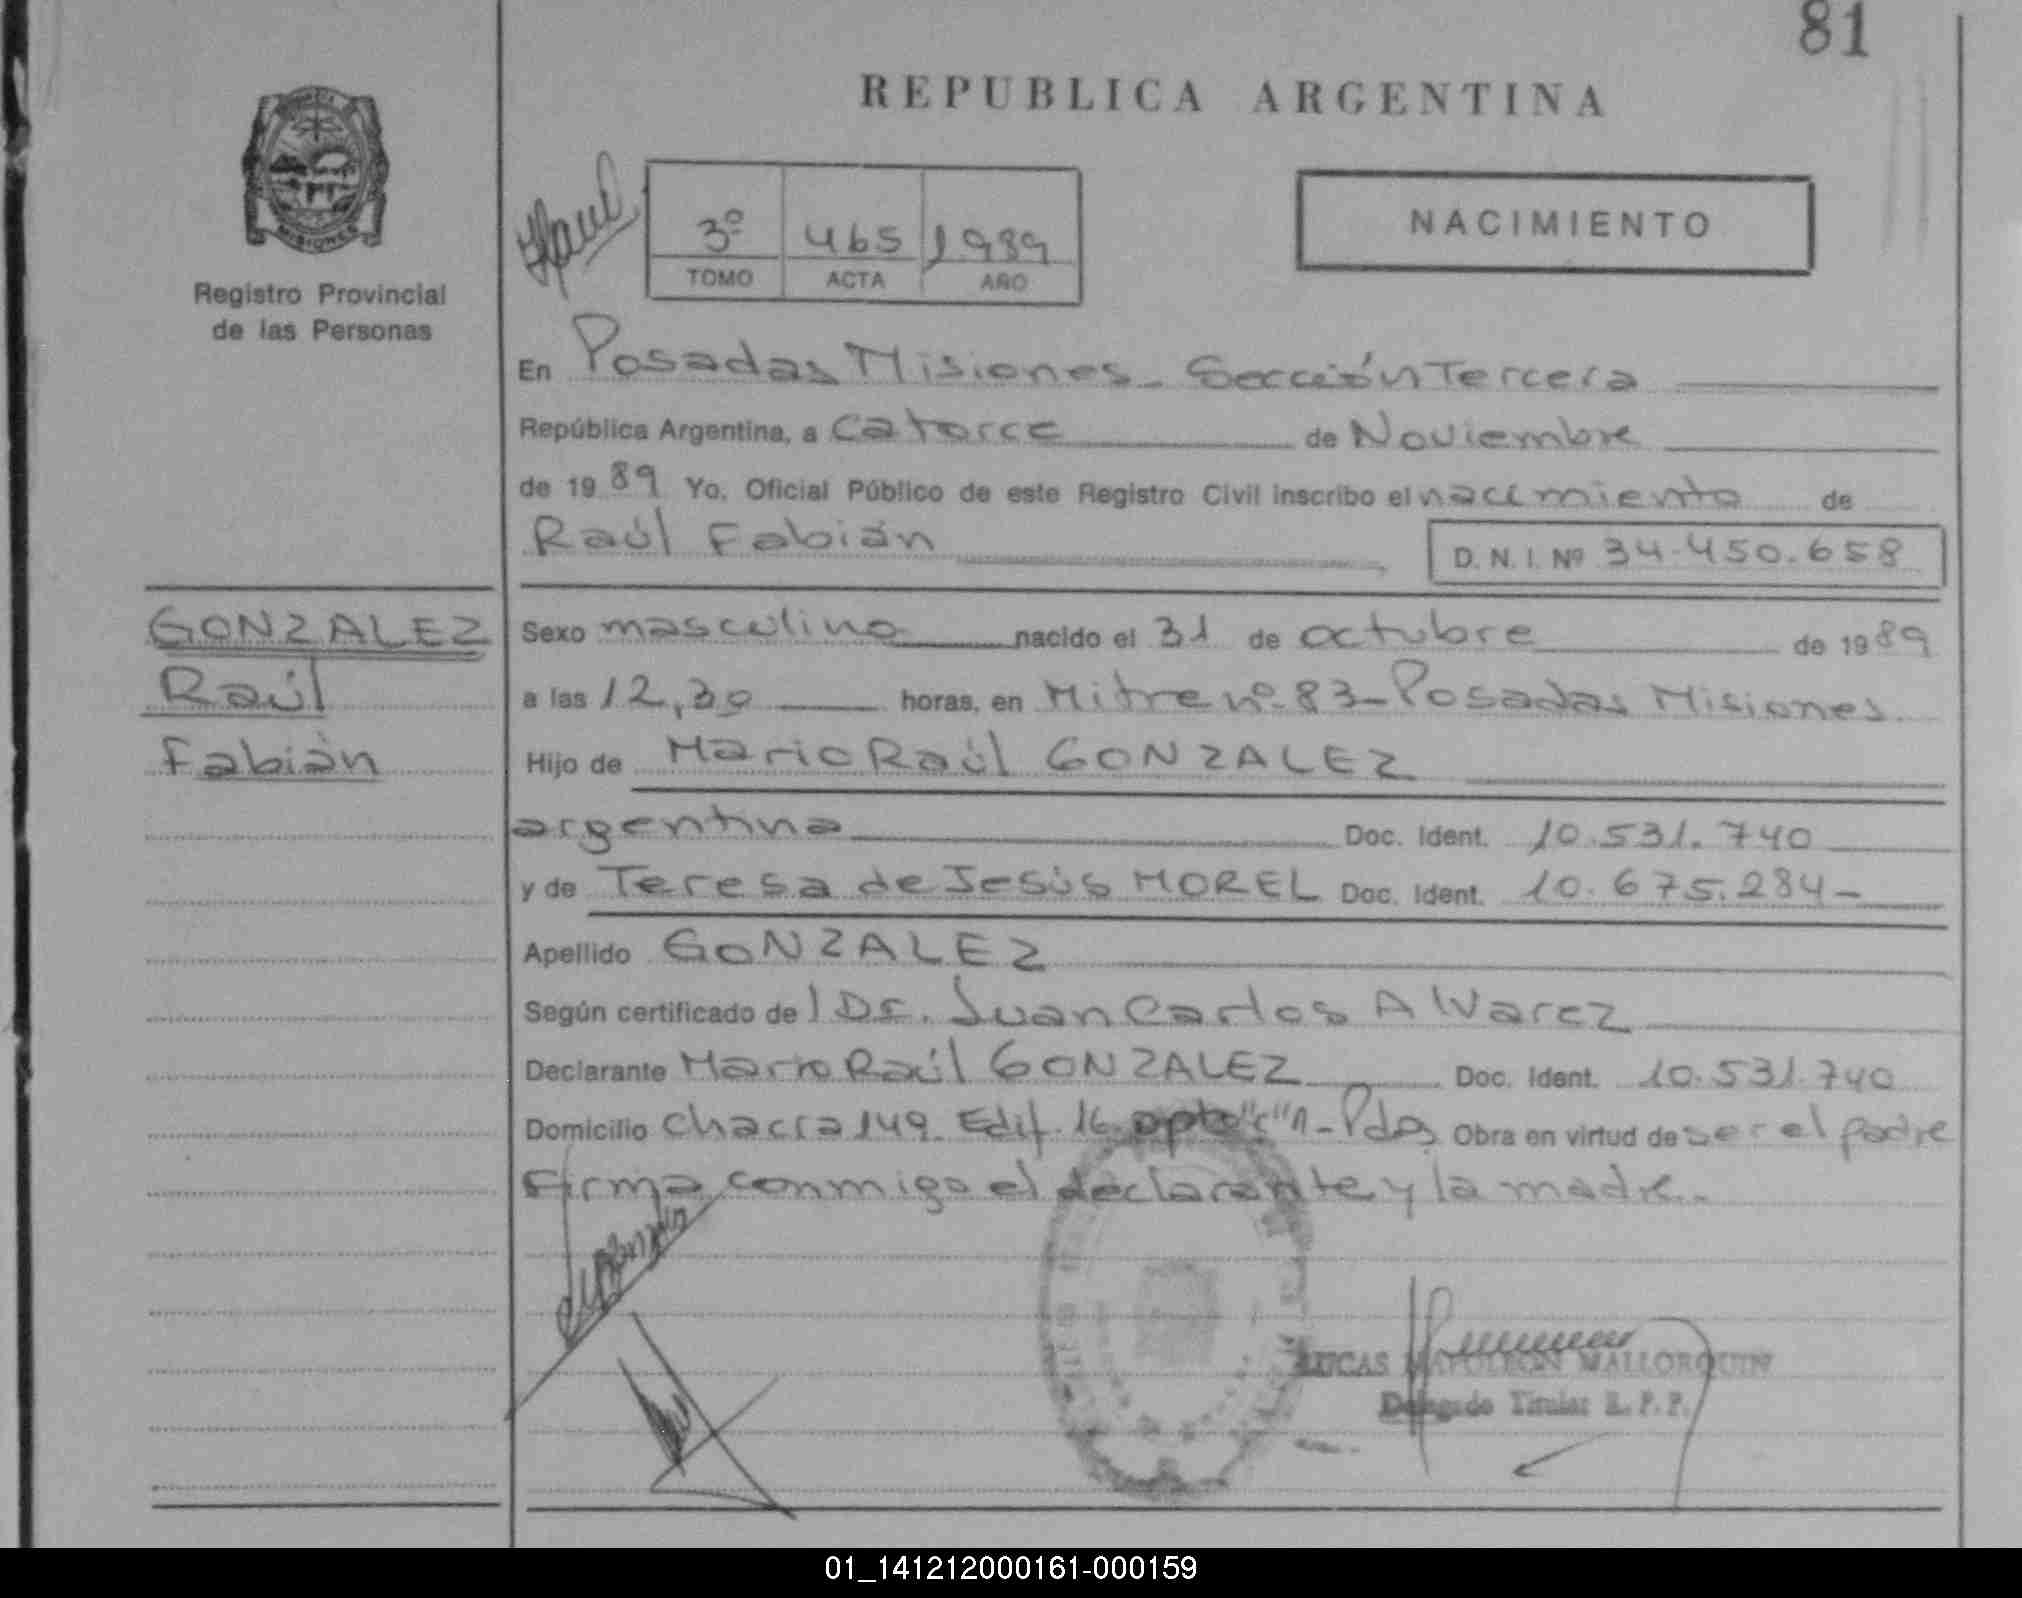 81
REPUBLICA ARGENTINA
MISIONES
Registro Provincial
de las Personas
3º 465 1989
TOMO ACTA AÑO
NACIMIENTO
En Posadas Misiones - Sección Tercera
República Argentina, a catorce de Noviembre
de 1989 Yo, Oficial Público de este Registro Civil inscribo el nacimiento de
Raúl Fabián
D. N. I. Nº 34.450.658
GONZALEZ
Raúl
Fabián
Sexo masculino nacido el 31 de octubre de 1989
a las 12,30 horas, en Mitre nº 83 - Posadas Misiones
Hijo de Mario Raúl GONZALEZ
argentina Doc. Ident. 10.531.740
y de Teresa de Jesús MOREL Doc. Ident. 10.675.284-
Apellido GONZALEZ
Según certificado de l Dr. Juan Carlos Alvarez
Declarante Mario Raúl GONZALEZ Doc. Ident. 10.531.740
Domicilio chacra 149 Edif. 16 dpto "c" - Pdas Obra en virtud de ser el padre
Firma conmigo el declarante y la madre.
LUCAS NAPOLEON MALLORQUIN
Delegado Titular R. P. P.
01_141212000161-000159